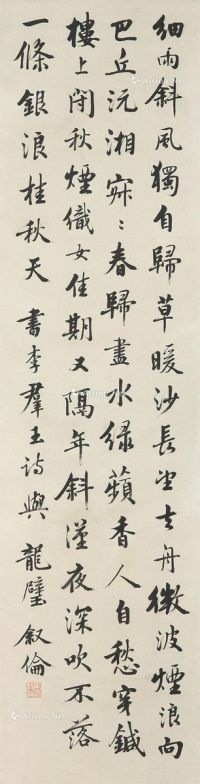 細雨斜風獨自歸草暖沙長望去舟微波煙浪向
巴丘沅湘寂〻春歸盡水綠蘋香人自愁穿鍼
樓上閉秋煙織女佳期又隔年斜漢夜深吹不落
一條銀浪桂秋天 書李羣玉詩與 龍璧 叙倫